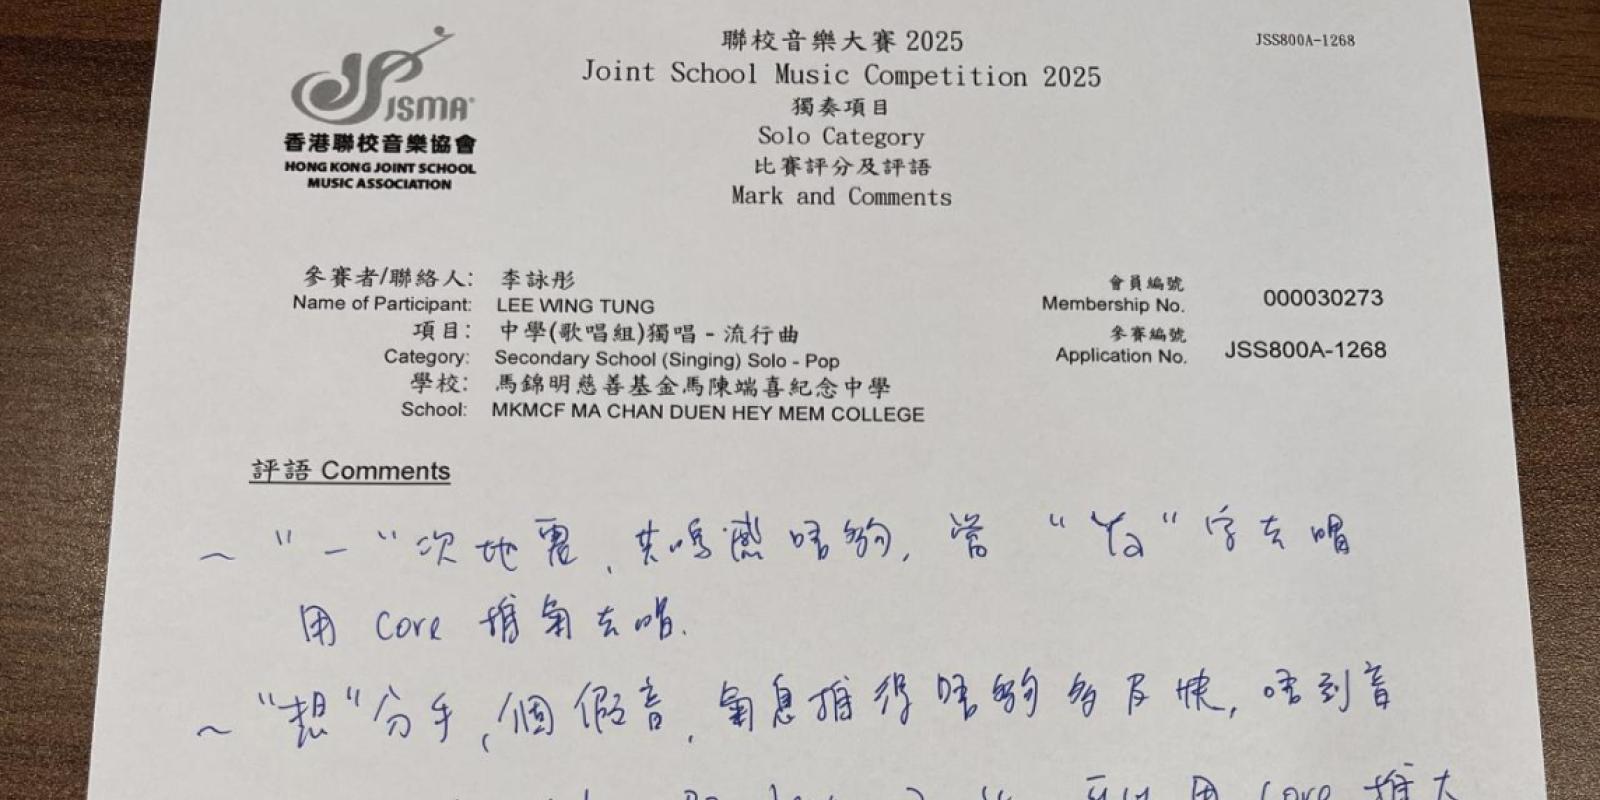 JSMA
香港聯校音樂協會
HONG KONG JOINT SCHOOL
MUSIC ASSOCIATION
聯校音樂大賽 2025
Joint School Music Competition 2025
獨奏項目
Solo Category
比賽評分及評語
Mark and Comments
JSS800A-1268
參賽者/聯絡人: 李詠彤
Name of Participant: LEE WING TUNG
項目: 中學(歌唱組)獨唱 - 流行曲
Category: Secondary School (Singing) Solo - Pop
學校: 馬錦明慈善基金馬陳端喜紀念中學
School: MKMCF MA CHAN DUEN HEY MEM COLLEGE
會員編號
Membership No. 000030273
參賽編號
Application No. JSS800A-1268
評語 Comments
~ "一" 次地震, 共鳴感唔夠, 當 " " 字去唱
用 core 推氣去唱.
~ "想" 分手, 個假音, 氣息推得唔夠多及快, 唔到音
用 core 推大